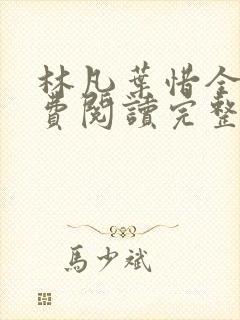 林凡葉惜全
費閱讀完整
馬少斌